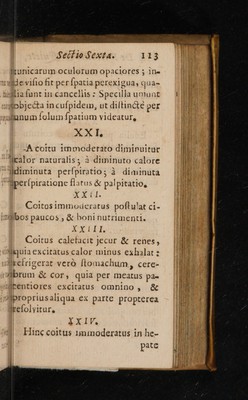 Sectio Sexta. 113
tunicarum oculorum opaciores ; in-
de visio fit per spatia perexigua, qua-
lia sunt in cancellis : Specilla uniunt
objecta in cuspidem, ut distincte per
unum solum spatium videatur.
XXI.
A coitu immoderato diminuitur
calor naturalis ; à diminuto calore
diminuta perspiratio ; à diminuta
perspiratione flatus & palpitatio.
XXII.
Coitus immoderatus postulat ci-
bos paucos , & boni nutrimenti.
XXIII.
Coitus calefacit jecur & renes,
quia excitatus calor minus exhalat :
refrigerat verò stomachum , cere-
brum & cor , quia per meatus pa-
tentiores excitatus omnino , &
proprius aliqua ex parte propterea
resolvitur.
XXIV.
Hinc coitus immoderatus in he-
pate